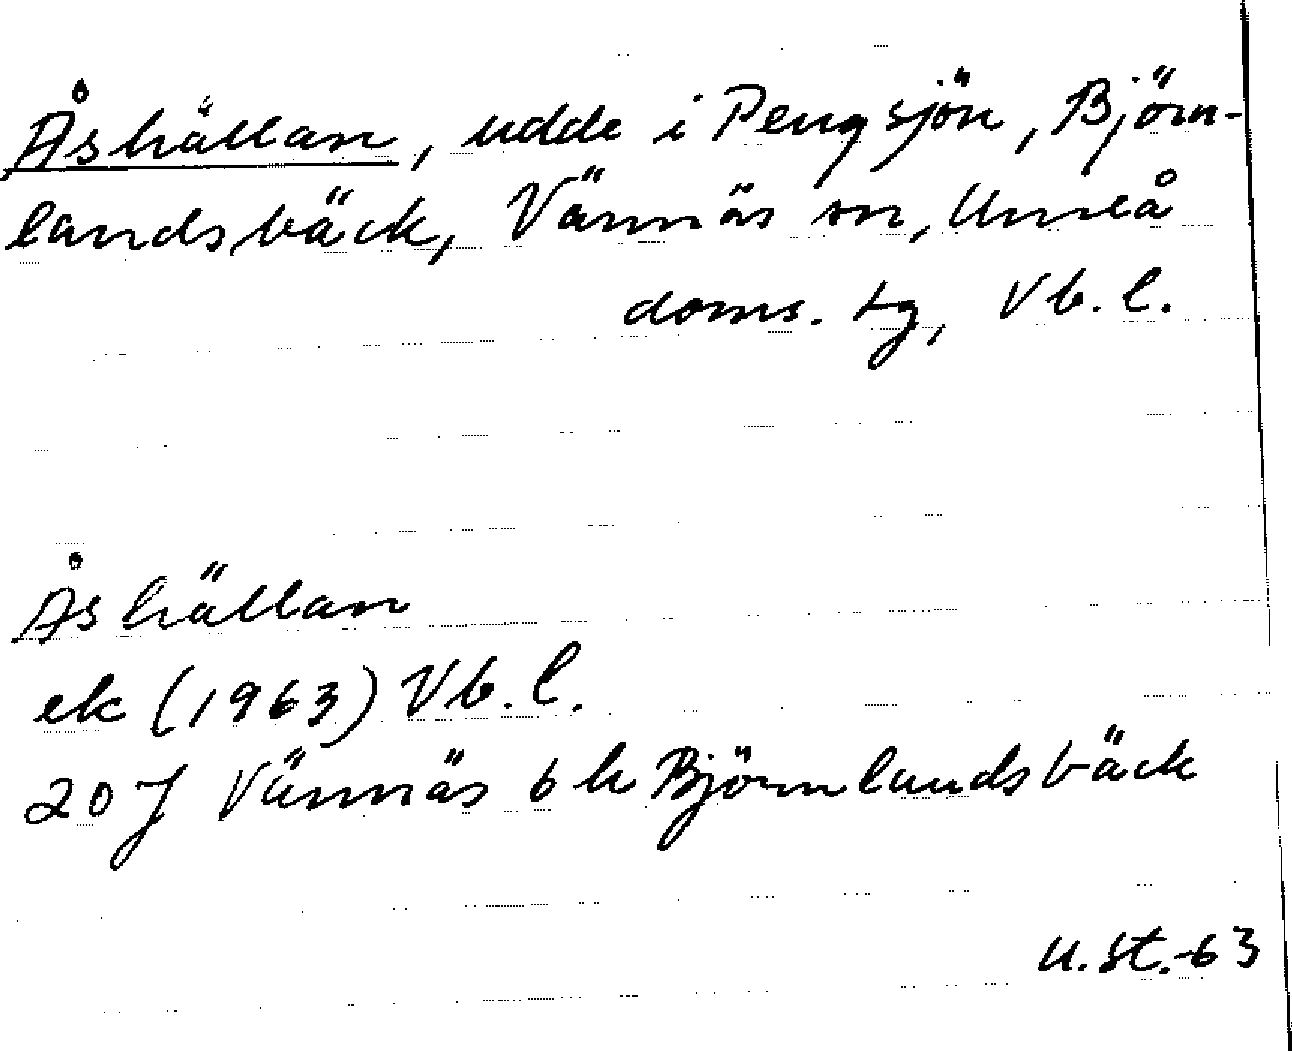 Åshällan, udde i Pengsjön, Björn-
landsbäck, Vännäs sn, Umeå
doms. tg, Vb. l.
Åshällan
ek (1963) Vb. l.
20 J Vännäs 6 h Björnlandsbäck
U.St.-63